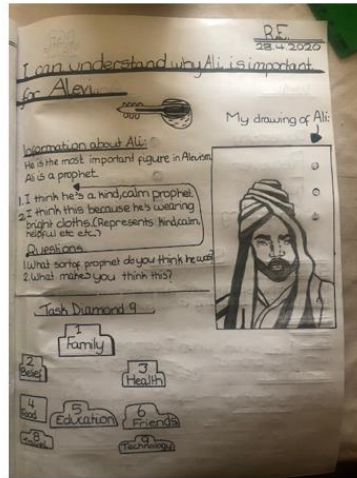 R.E.
28.4.2020
I can understand why Ali is important
for Alevi
My drawing of Ali:
Information about Ali:
He is the most important figure in Alevism,
Ali is a prophet.
1. I think he's a kind, calm prophet
2. I think this because he's wearing
bright cloths. (Represents Kind, calm,
helpful etc etc.)
Questions
1. What sort of prophet do you think he was?
2. What makes you think this?
Task Diamond 9
1
Family
2
Belief
3
Health
4
Food
5
Education
6
Friends
8
9
Technology